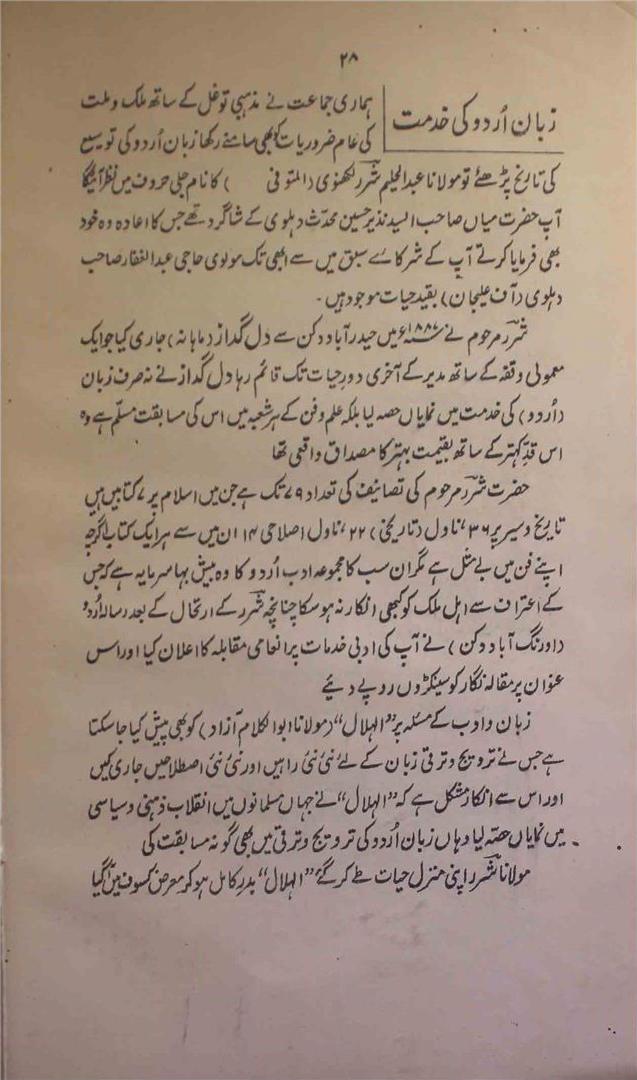 ۲۸
زبان اُردو کی خدمت
ہماری جماعت نے مذہبی توغل کے ساتھ ملک و ملت
کی عام ضروریات کو بھی سامنے رکھا زبان اُردو کی توسیع
کی تاریخ پڑھئے تو مولانا عبدالحلیم شررؔ لکھنوی (المتوفی ) کا نام جلی حروف میں نظر آئیگا
آپ حضرت میاں صاحب السید نذیر حسین محدّث دہلوی کے شاگرد تھے جس کا اعادہ وہ خود
بھی فرمایا کرتے آپ کے شرکائے سبق میں سے ابھی تک مولوی حاجی عبدالغفار صاحب
دہلوی (آف علیجان) بقید حیات موجود ہیں۔
شررؔ مرحوم نے میں حیدرآباد دکن سے دل گداز (ماہانہ) جاری کیا جو ایک
معمولی وقفہ کے ساتھ مدیر کے آخری دور حیات تک قائم رہا دل گداز نے نہ صرف زبان
(اُردو) کی خدمت میں نمایاں حصہ لیا بلکہ علم و فن کے ہر شعبہ میں اس کی مسابقت مسلّم ہے وہ
اس قدِّ کہتر کے ساتھ بقیمت بہتر کا مصداق واقعی تھا
حضرت شررؔ مرحوم کی تصانیف کی تعداد ۷۹ تک ہے جن میں اسلام پر ۷ کتابیں ہیں
تاریخ و سیر پر ۳۶، ناول (تاریخی) ۲۲، ناول اصلاحی ۱۴ ان میں سے ہر ایک کتاب اگرچہ
اپنے فن میں بے مثل ہے مگر ان سب کا مجموعہ ادب اُردو کا وہ بیش بہا سرمایہ ہے کہ جس
کے اعتراف سے اہل ملک کو کبھی انکار نہ ہو سکا چنانچہ شررؔ کے ارتحال کے بعد رسالہ اُردو
(اورنگ آباد دکن) نے آپ کی ادبی خدمات پر انعامی مقابلہ کا اعلان کیا اور اس
عنوان پر مقالہ نگار کو سینکڑوں روپے دیئے
زبان و ادب کے مسئلہ پر "الہلال" (مولانا ابوالکلام آزاد) کو بھی پیش کیا جا سکتا
ہے جس نے ترویج و ترقی زبان کے لئے نئی نئی راہیں اور نئی نئی اصطلاحیں جاری کیں
اور اس سے انکار مشکل ہے کہ "الہلال" نے جہاں مسلمانوں میں انقلاب ذہنی و سیاسی
میں نمایاں حصّہ لیا وہاں زبان اُردو کی ترویج و ترقی میں بھی گونہ مسابقت کی
مولانا شررؔ اپنی منزل حیات طے کر گئے "الہلال" بدر کامل ہو کر معرض کسوف میں آگیا